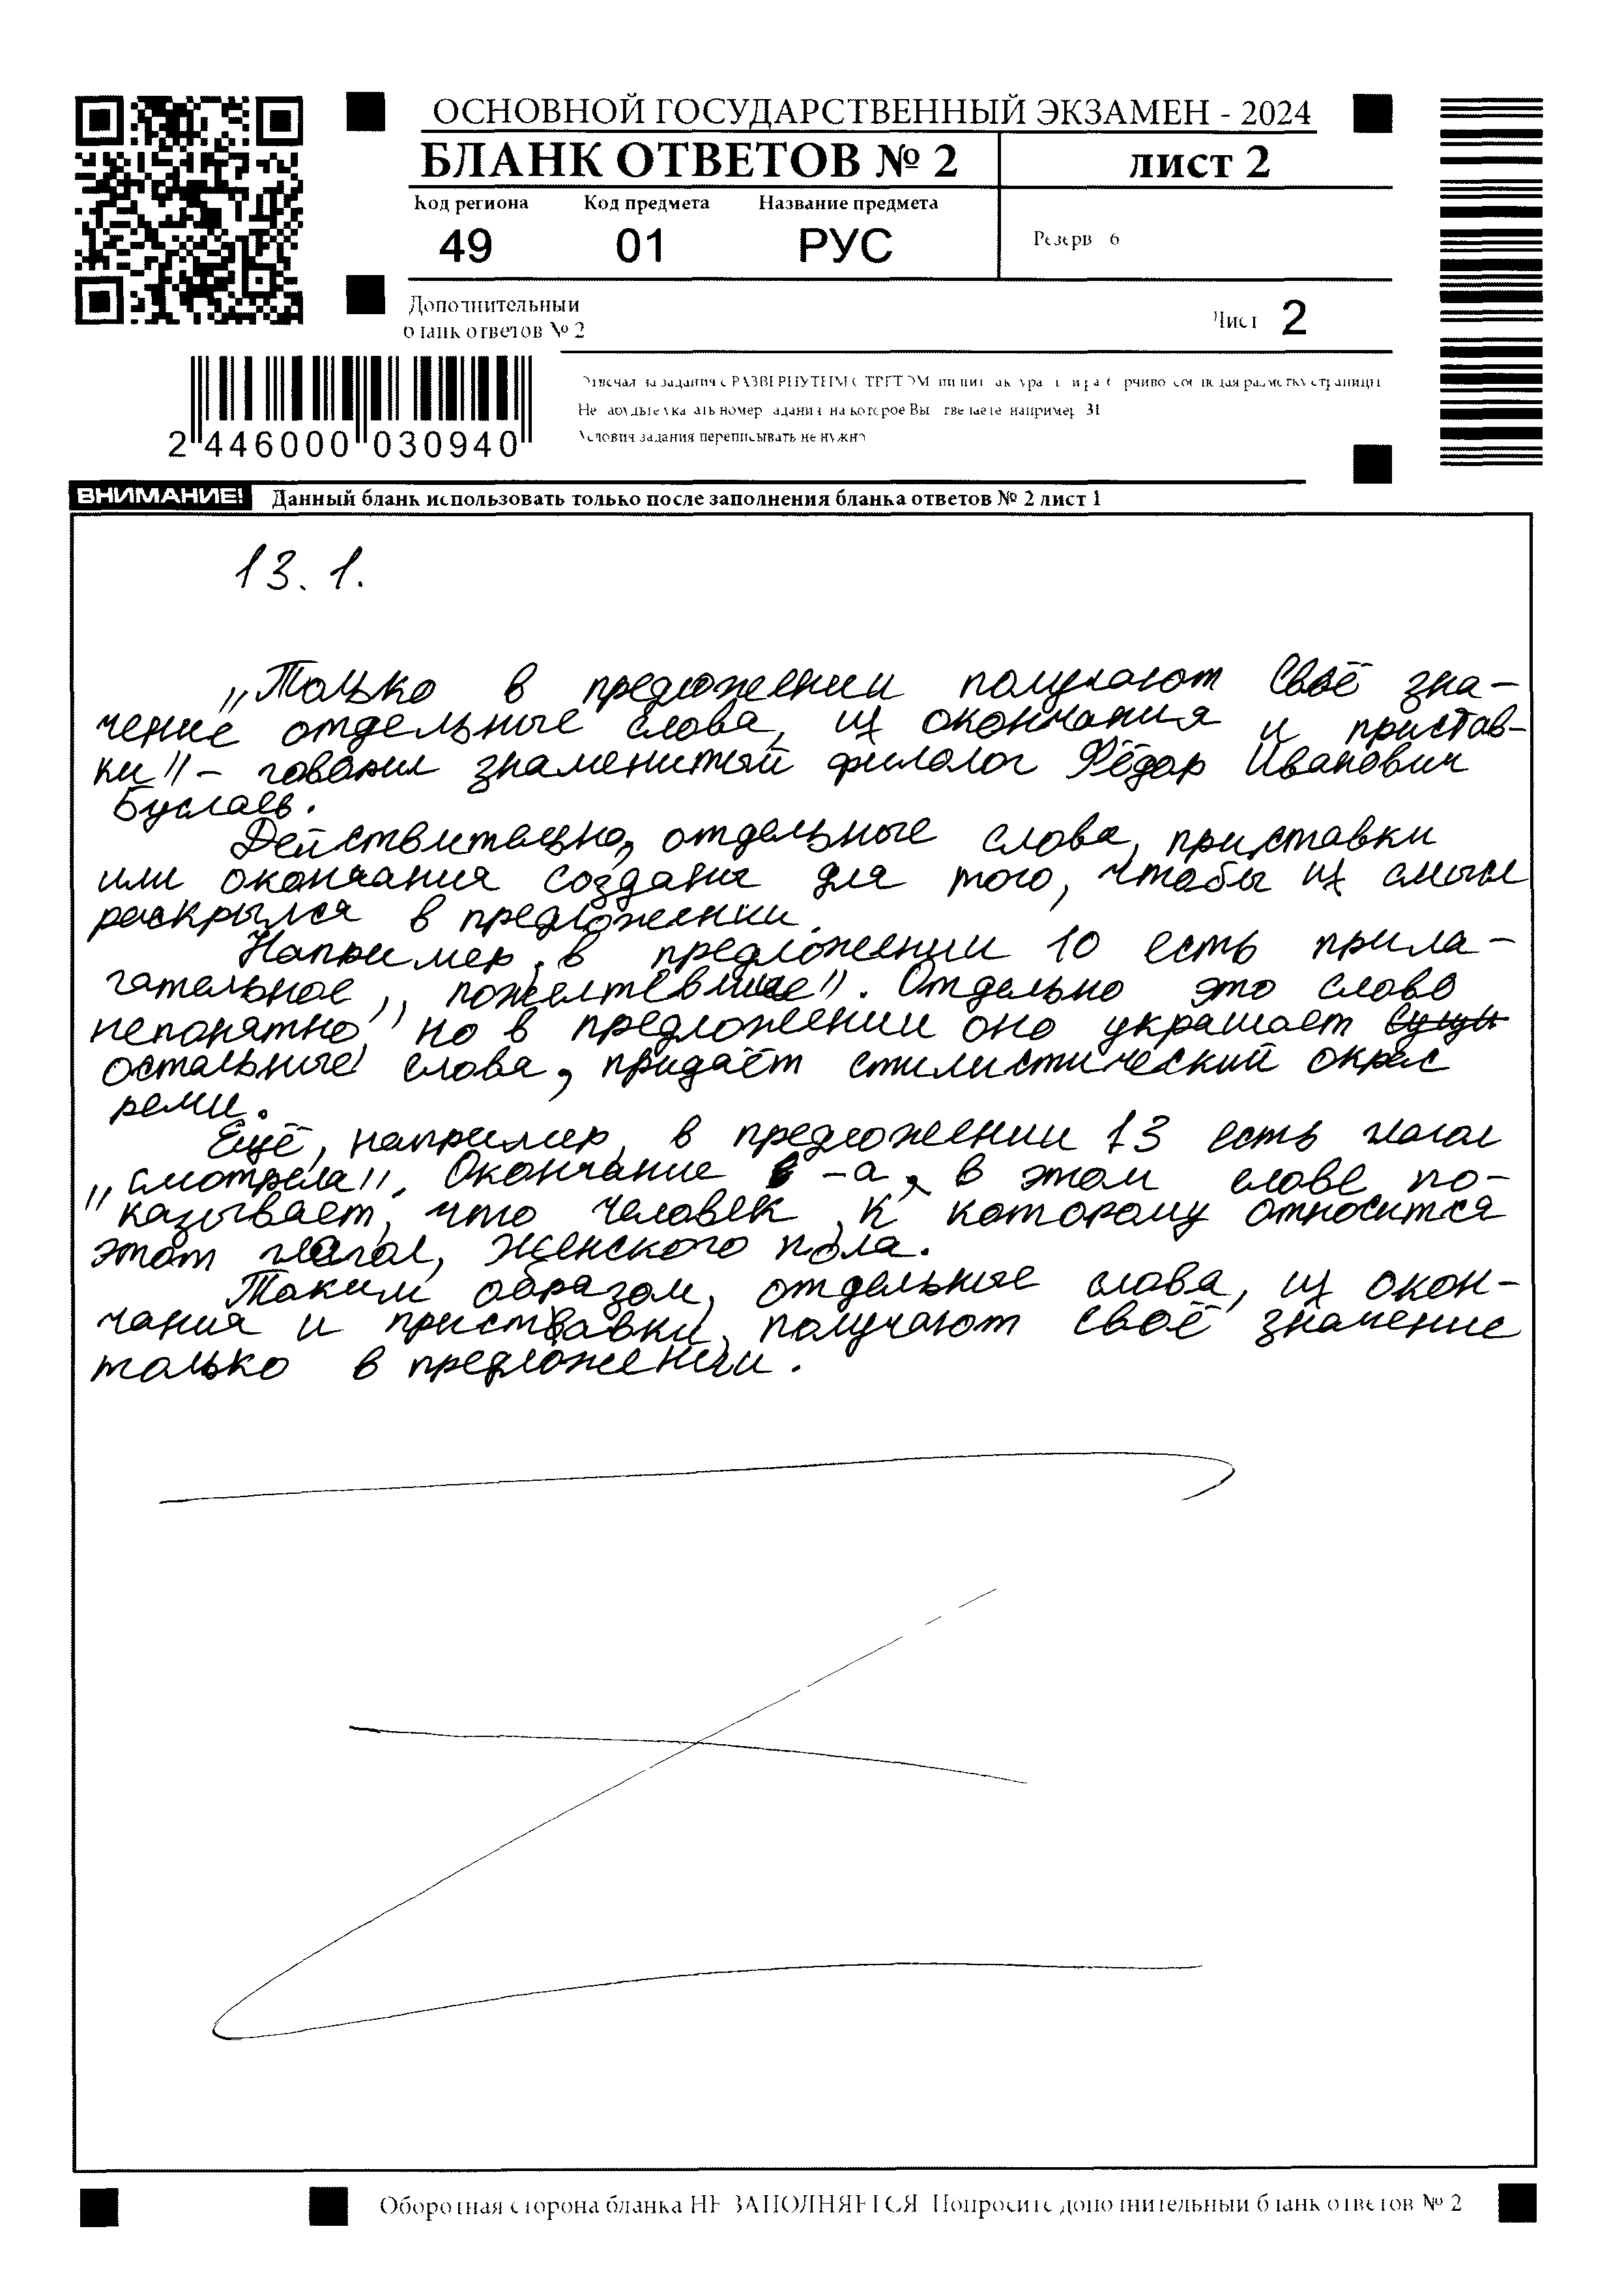 ОСНОВНОЙ ГОСУДАРСТВЕННЫЙ ЭКЗАМЕН - 2024
БЛАНК ОТВЕТОВ № 2
лист 2
Код региона Код предмета Название предмета
49 01 РУС
Резерв 6
Дополнительный
бланк ответов № 2
Лист 2
2 446000 030940
ВНИМАНИЕ! Данный бланк использовать только после заполнения бланка ответов № 2 лист 1
13. 1.
„Только в предложении получают своё зна-
чение отдельные слова, их окончания и пристав-
ки" - говорил знаменитый филолог Фёдор Иванович
Буслаев.
Действительно, отдельные слова, приставки
или окончания созданы для того, чтобы их смысл
раскрылся в предложении.
Например, в предложении 10 есть прила-
гательное „пожелтевшие". Отдельно это слово
непонятно, но в предложении оно украшает
остальные слова, придаёт стилистический окрас
речи.
Ещё, например, в предложении 13 есть глагол
„смотрела". Окончание -а, в этом слове по-
казывает, что человек, к которому относится
этот глагол, женского пола.
Таким образом, отдельные слова, их окон-
чания и приставки, получают своё значение
только в предложении.
Оборотная сторона бланка НЕ ЗАПОЛНЯЕТСЯ Попросите дополнительный бланк ответов № 2